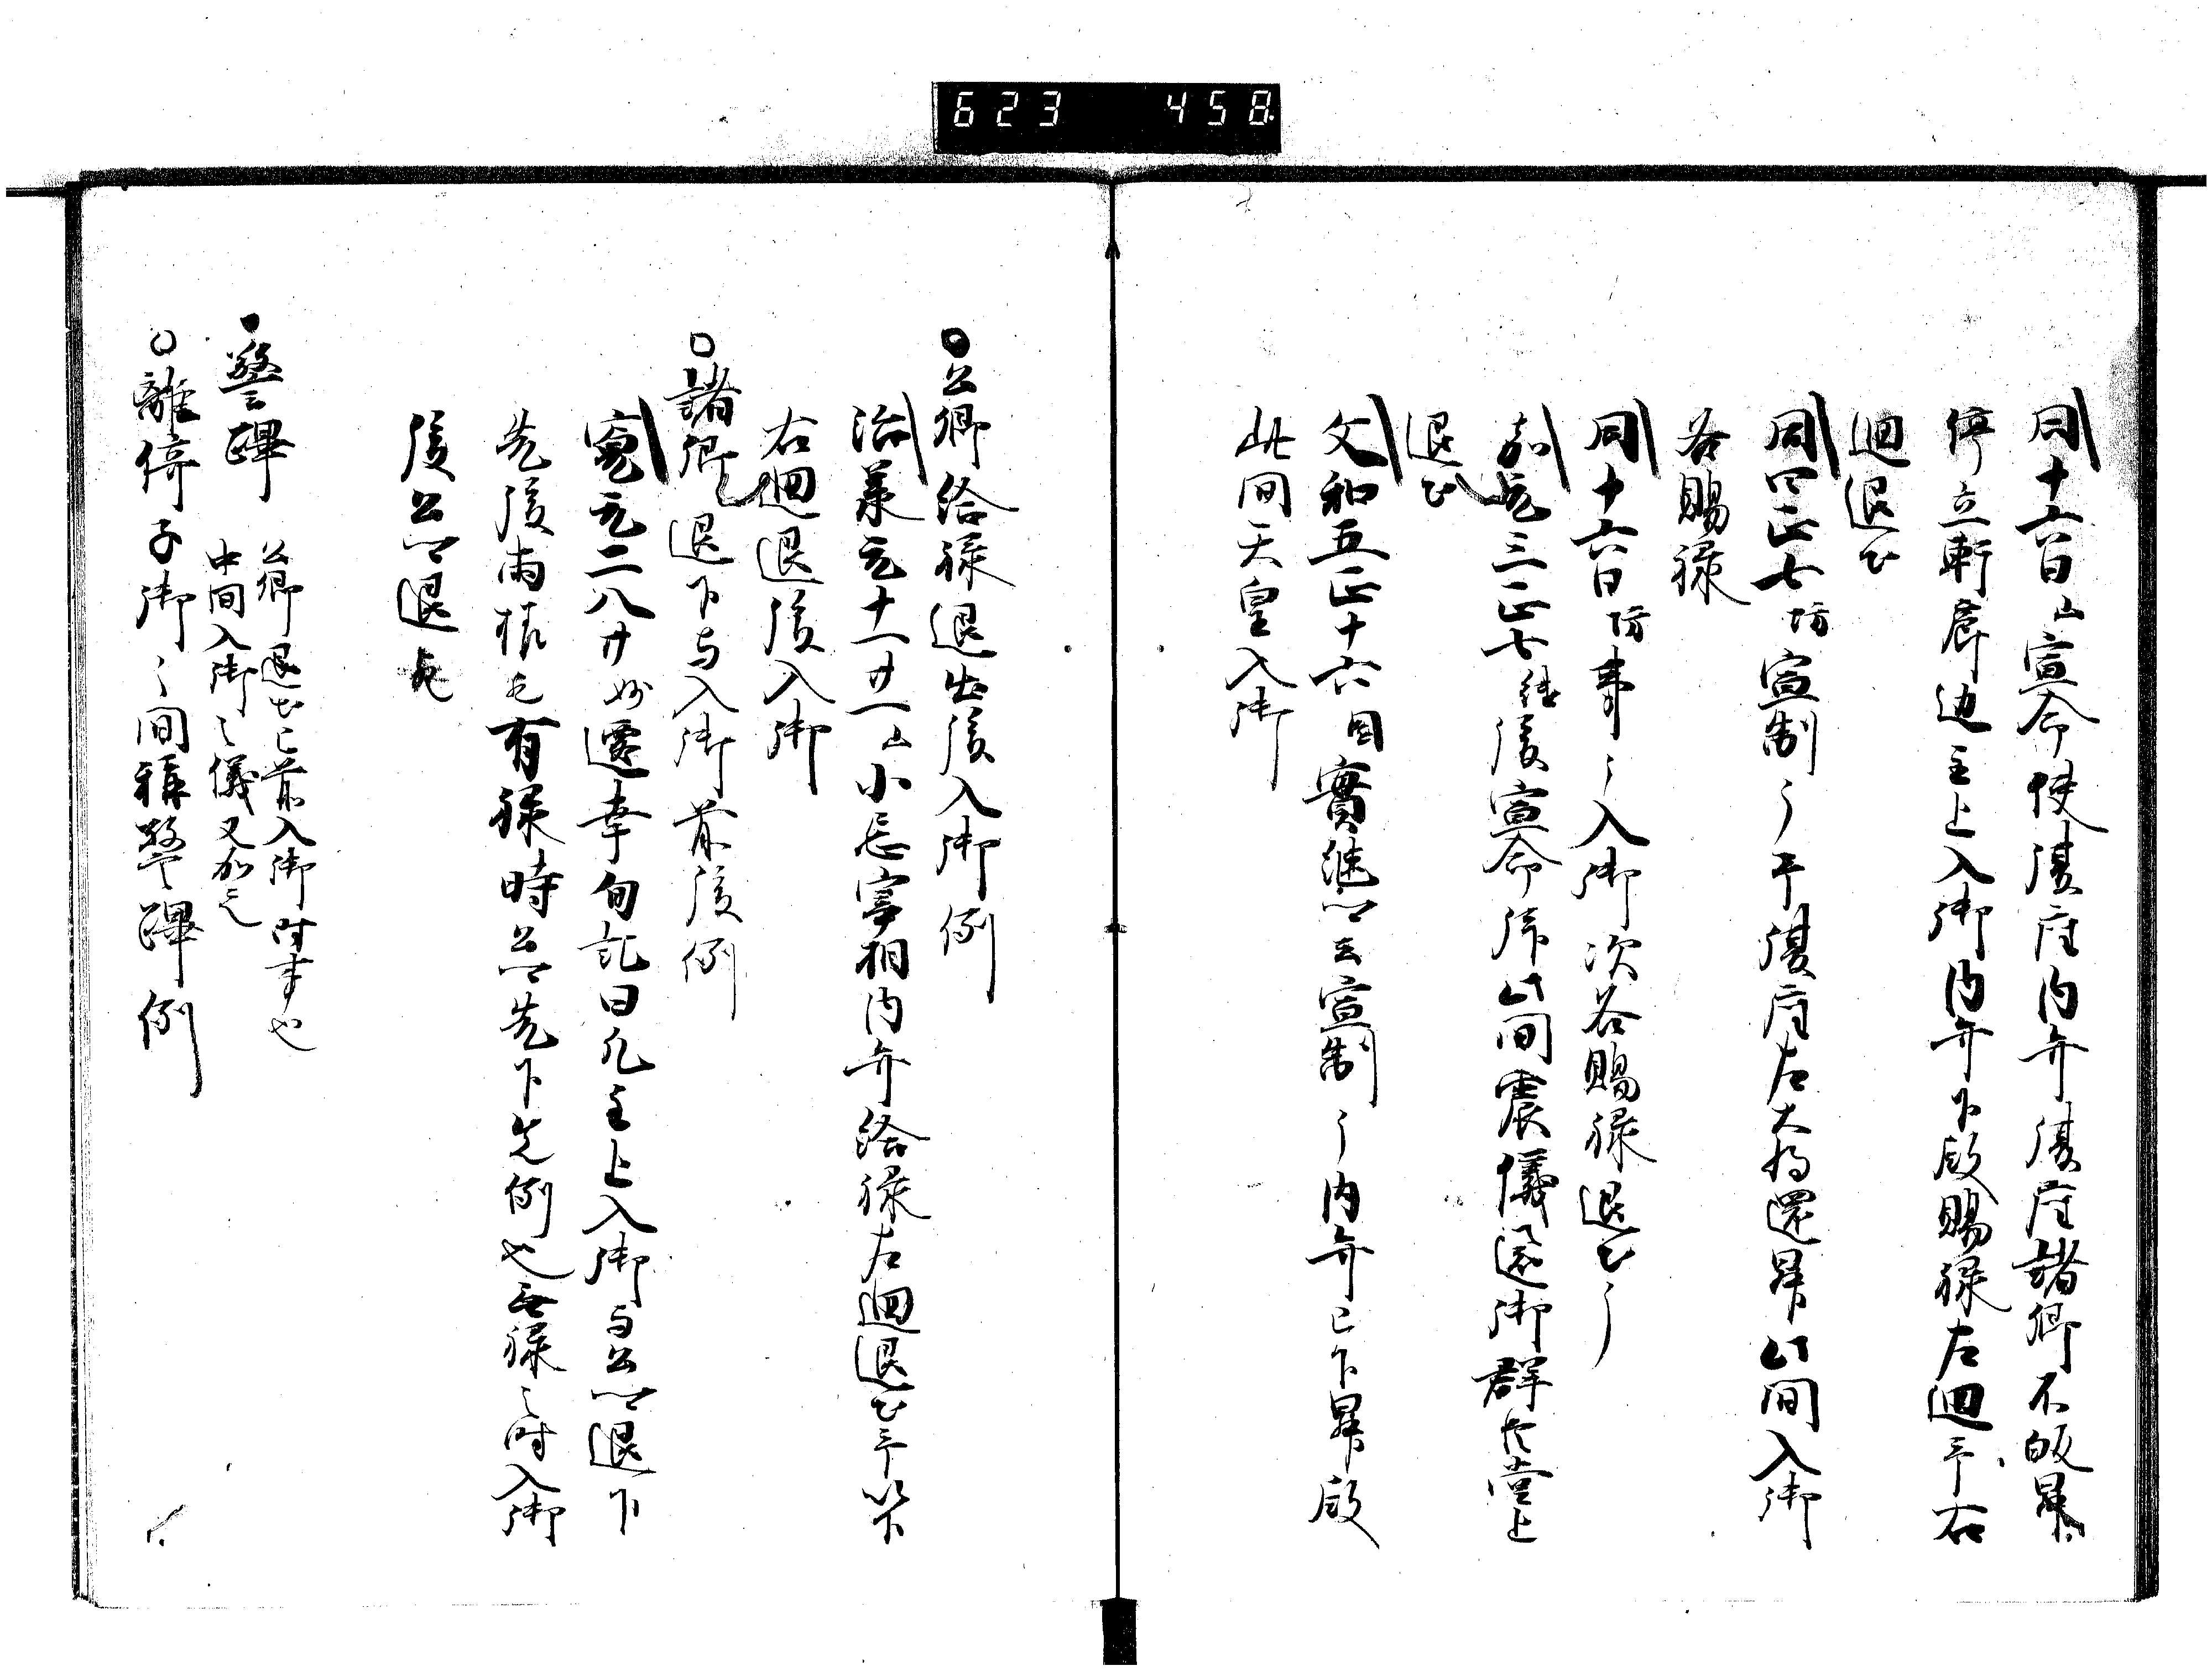 623 458
同十六日山宣命使復座内弁復座諸卿不皈昇
停立軒廊边主上入御内弁下殿賜禄左廻予右
廻退出
同四正七坊宣制〻〻予復座左大将還昇此間入御
各賜禄
同十六日坊事〻入御次各賜禄退出〻
嘉元三正七後宣命席此間震儀還御群臣堂上
退出
文和五正十六実継公云宣制〻〻内弁已下昇殿
此間天皇入御
公卿給禄退出後入御例
治承元十一廿一山小忌宰相内弁給禄左廻退出予以下
右廻退後入御
諸卿退下与入御前後例
寛元二八廿遷幸旬記曰凡主上入御与公卿退下
先後両様也有禄時公卿先下先例也無禄之時入御
後公卿退
警蹕 公卿退出已前入御時事也
中間入御之儀又加之
離倚子御之間称警蹕例